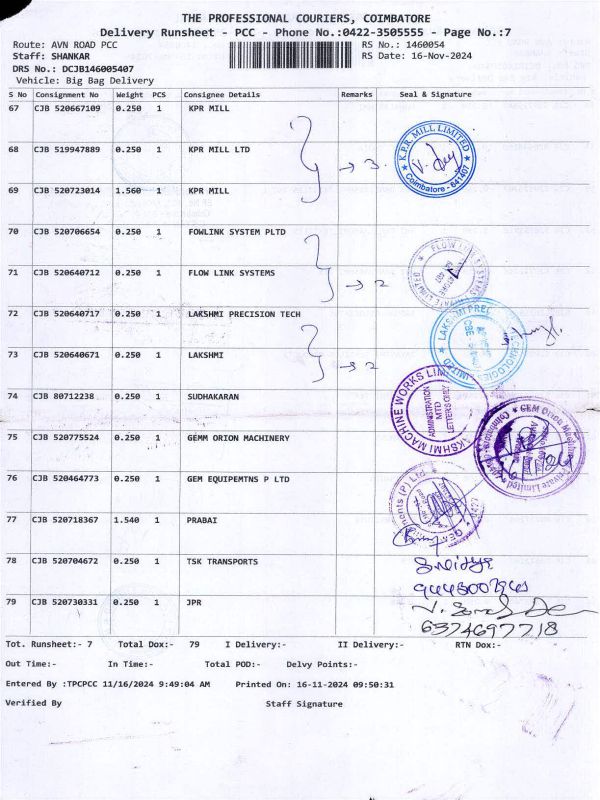 THE PROFESSIONAL COURIERS, COIMBATORE
Delivery Runsheet - PCC - Phone No.:0422-3505555 - Page No.:7
Route: AVN ROAD PCC RS No.: 1460054
Staff: SHANKAR RS Date: 16-Nov-2024
DRS No.: DCJB146005407
Vehicle: Big Bag Delivery
S No Consignment No Weight PCS Consignee Details Remarks Seal & Signature
67 CJB 520667109 0.250 1 KPR MILL
68 CJB 519947889 0.250 1 KPR MILL LTD → 3. K.P.R. MILL LIMITED Coimbatore - 641407
69 CJB 520723014 1.560 1 KPR MILL
70 CJB 520706654 0.250 1 FOWLINK SYSTEM PLTD
71 CJB 520640712 0.250 1 FLOW LINK SYSTEMS → 2
72 CJB 520640717 0.250 1 LAKSHMI PRECISION TECH
73 CJB 520640671 0.250 1 LAKSHMI → 2
74 CJB 80712238 0.250 1 SUDHAKARAN LAKSHMI MACHINE WORKS LIMITED ADMINISTRATION MTD LETTERS ONLY
75 CJB 520775524 0.250 1 GEMM ORION MACHINERY
76 CJB 520464773 0.250 1 GEM EQUIPEMTNS P LTD
77 CJB 520718367 1.540 1 PRABAI
78 CJB 520704672 0.250 1 TSK TRANSPORTS
79 CJB 520730331 0.250 1 JPR
6374697718
Tot. Runsheet:- 7 Total Dox:- 79 I Delivery:- II Delivery:- RTN Dox:-
Out Time:- In Time:- Total POD:- Delvy Points:-
Entered By :TPCPCC 11/16/2024 9:49:04 AM Printed On: 16-11-2024 09:50:31
Verified By Staff Signature